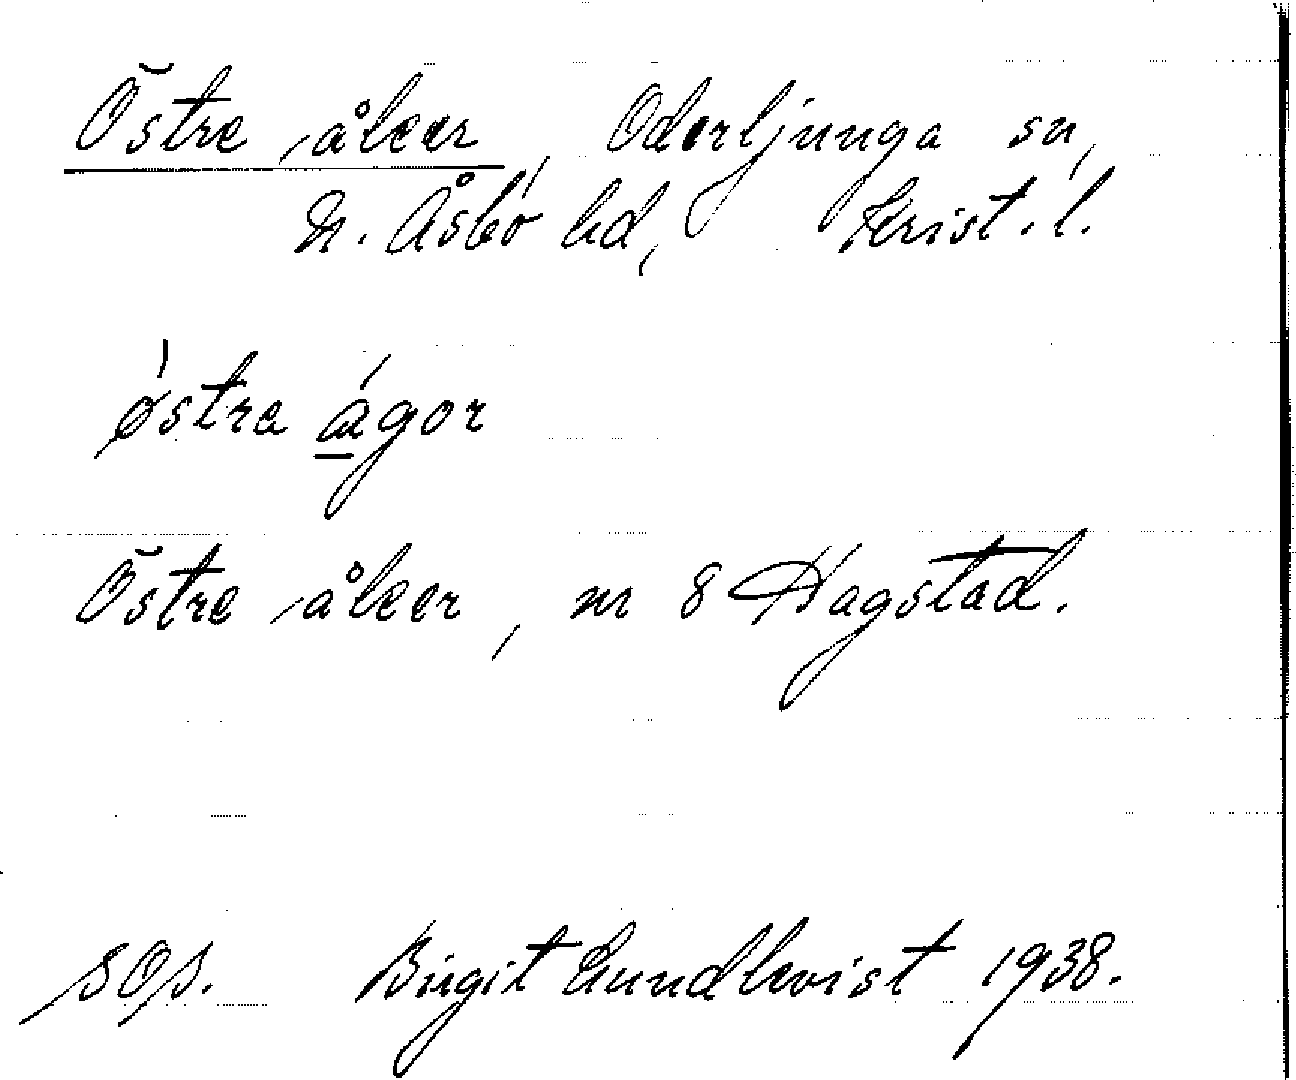 Östre åker, Oderljunga sn,
N. Åsbo hd, Krist. l.
østra ágor
Östre åker, nr 8 Hagstad.
SOS. Birgit Lundkvist 1938.